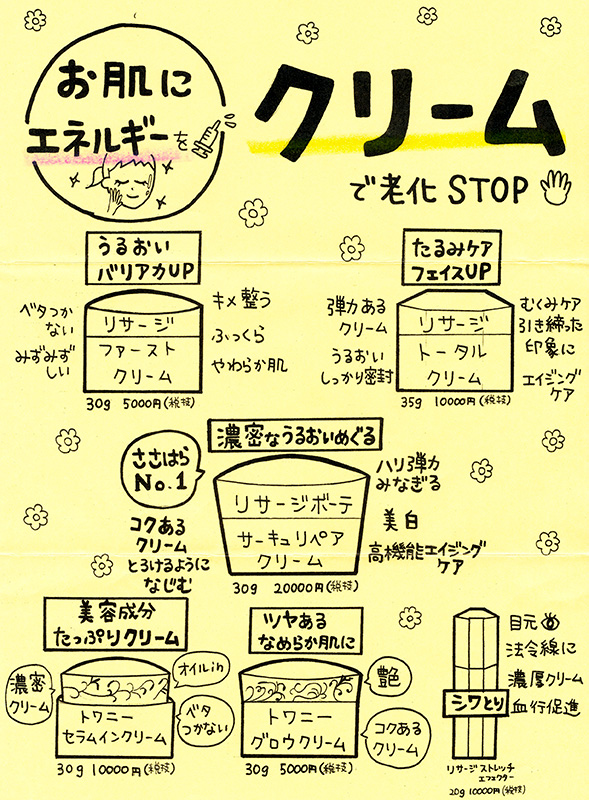 お肌に
エネルギーを
クリーム
で老化 STOP
うるおい
バリアカUP
ベタつか
ない
みずみず
しい
リサージ
ファースト
クリーム
キメ整う
ふっくら
やわらか肌
30g 5000円(税抜)
たるみケア
フェイスUP
弾力ある
クリーム
うるおい
しっかり密封
リサージ
トータル
クリーム
むくみケア
引き締った
印象に
エイジング
ケア
35g 10000円(税抜)
濃密なうるおいめぐる
ささはら
No.1
コクある
クリーム
とろけるように
なじむ
リサージボーテ
サーキュリペア
クリーム
ハリ弾力
みなぎる
美白
高機能エイジング
ケア
30g 20000円(税抜)
美容成分
たっぷりクリーム
濃密
クリーム
オイルin
ベタ
つかない
トワニー
セラムインクリーム
30g 10000円(税抜)
ツヤある
なめらか肌に
艶
コクある
クリーム
トワニー
グロウクリーム
30g 5000円(税抜)
目元
法令線に
濃厚クリーム
血行促進
シワとり
リサージ ストレッチ
エフェクター
20g 10000円(税抜)